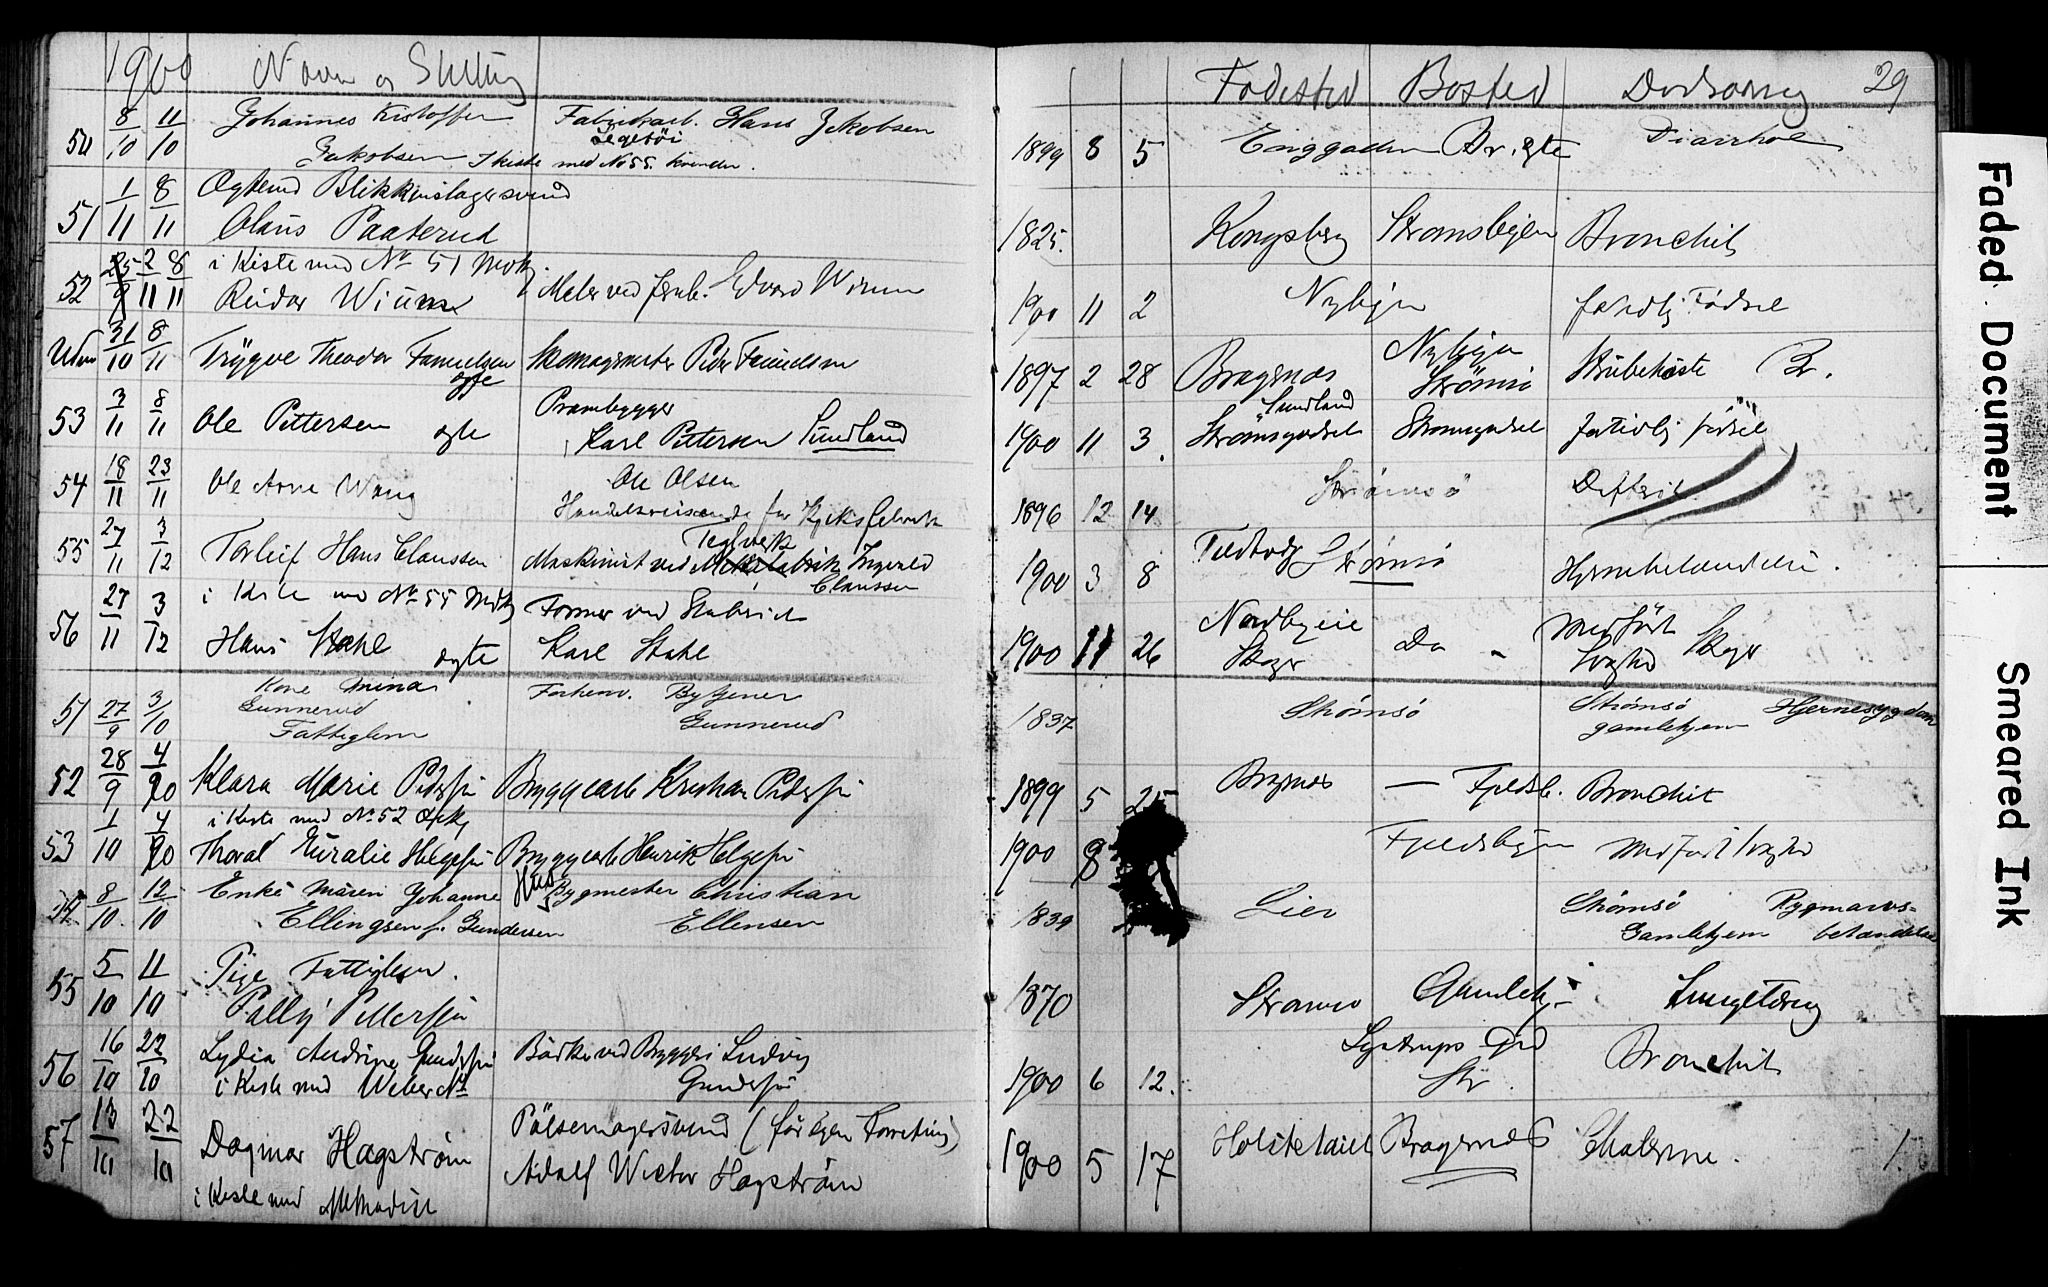 1900 Navn og Stilling
Fødested Bosted Dødsaarsag 29
50 8/10 11/10 Johannes Kistoffer Fabrikarb. Hans Jakobsen
Legetøi
Jakobsen I kiste med No 55. kvinder.
1899 8 5 Enggaden Br. ægte Diarrhoe
51 1/11 8/11 Blikkenslagersvend
Olaus Paaterud
1825. Kongsberg Strømsbyen Bronchit
i Kiste med No 51 Mdk.
52 25/9 2/11 8/11 Reidar Wium Maler ved Jernb. Edvard Wium
1900 11 2 Nybyen Fødsel
Uden 31/10 8/11 Trygve Theodor Skomagermester Peder
ægte
1897 2 28 Bragernæs Nybyen Strømsø Strubehoste Br.
53 3/11 8/11 Ole Pettersen ægte Prambygger
Karl Pettersen Sundland
1900 11 3. Sundland Strømsgodset Strømsgodset fødsel
54 18/11 23/11 Ole Arne Wang Ole Olsen
Handelsreisende for Kjeksfabrik
1896 12 14 Strømsø Difterit.
55 27/11 3/12 Torleif Hans Claussen Maskinist ved Teglverk Ingvald
Claussen
1900 3 8 Strømsø Hjernebetændelse.
i Kiste med No 55 Mdk
56 27/11 3/12 Hans Stahl ægte Former ved
Karl Stahl
1900 11 26 Nordbyeie Skoger Do " Medfødt Svaghed Skoger
51 27/9 3/10 Kone Mina Forhenv. Bytjener
Gunnerud Gunnerud
Fattiglem
1837 Strømsø Strømsø gamlehjem Hjernesygdom
52 28/9 4/10 Klara Marie Pedersen Bryggearb Kristian Pedersen
1899 5 25 Bragernes — Fjeldsb. Bronchit
i Kiste med No 52
53 1/10 4/10 Thoral Euralie Helgesen Bryggearb Henrik Helgesen
1900 9 Fjeldsbyen Medfødt svaghed
54 8/10. 12/10 Enke Maren Johanne Husbygmester Christian
Ellingsen f. Gundersen Ellensen
1839 Lier Strømsø Gamlehjem Rygmarvs-
betændelse
55 5/10 11/10 Pige Fattiglem.
Pally Pettersen
1870 Strømsø Gamlehj. Lungetæring
56 16/10 22/10 Lydia Andrine Gundersen Bødker ved Bryggeri Ludvig
i Kiste med Weber No Gundersen
1900 6 12. Lystrups Grd Str. Bronchit
57 13/10 22/10 Dagmar Hagstrøm Pølsemagersvend (før egen Forretning)
Adolf Victor Hagstrøm
i Kiste med Methodist
1900 5 17 Bragernes Cholerine. 1.
Faded Document
Smeared Ink